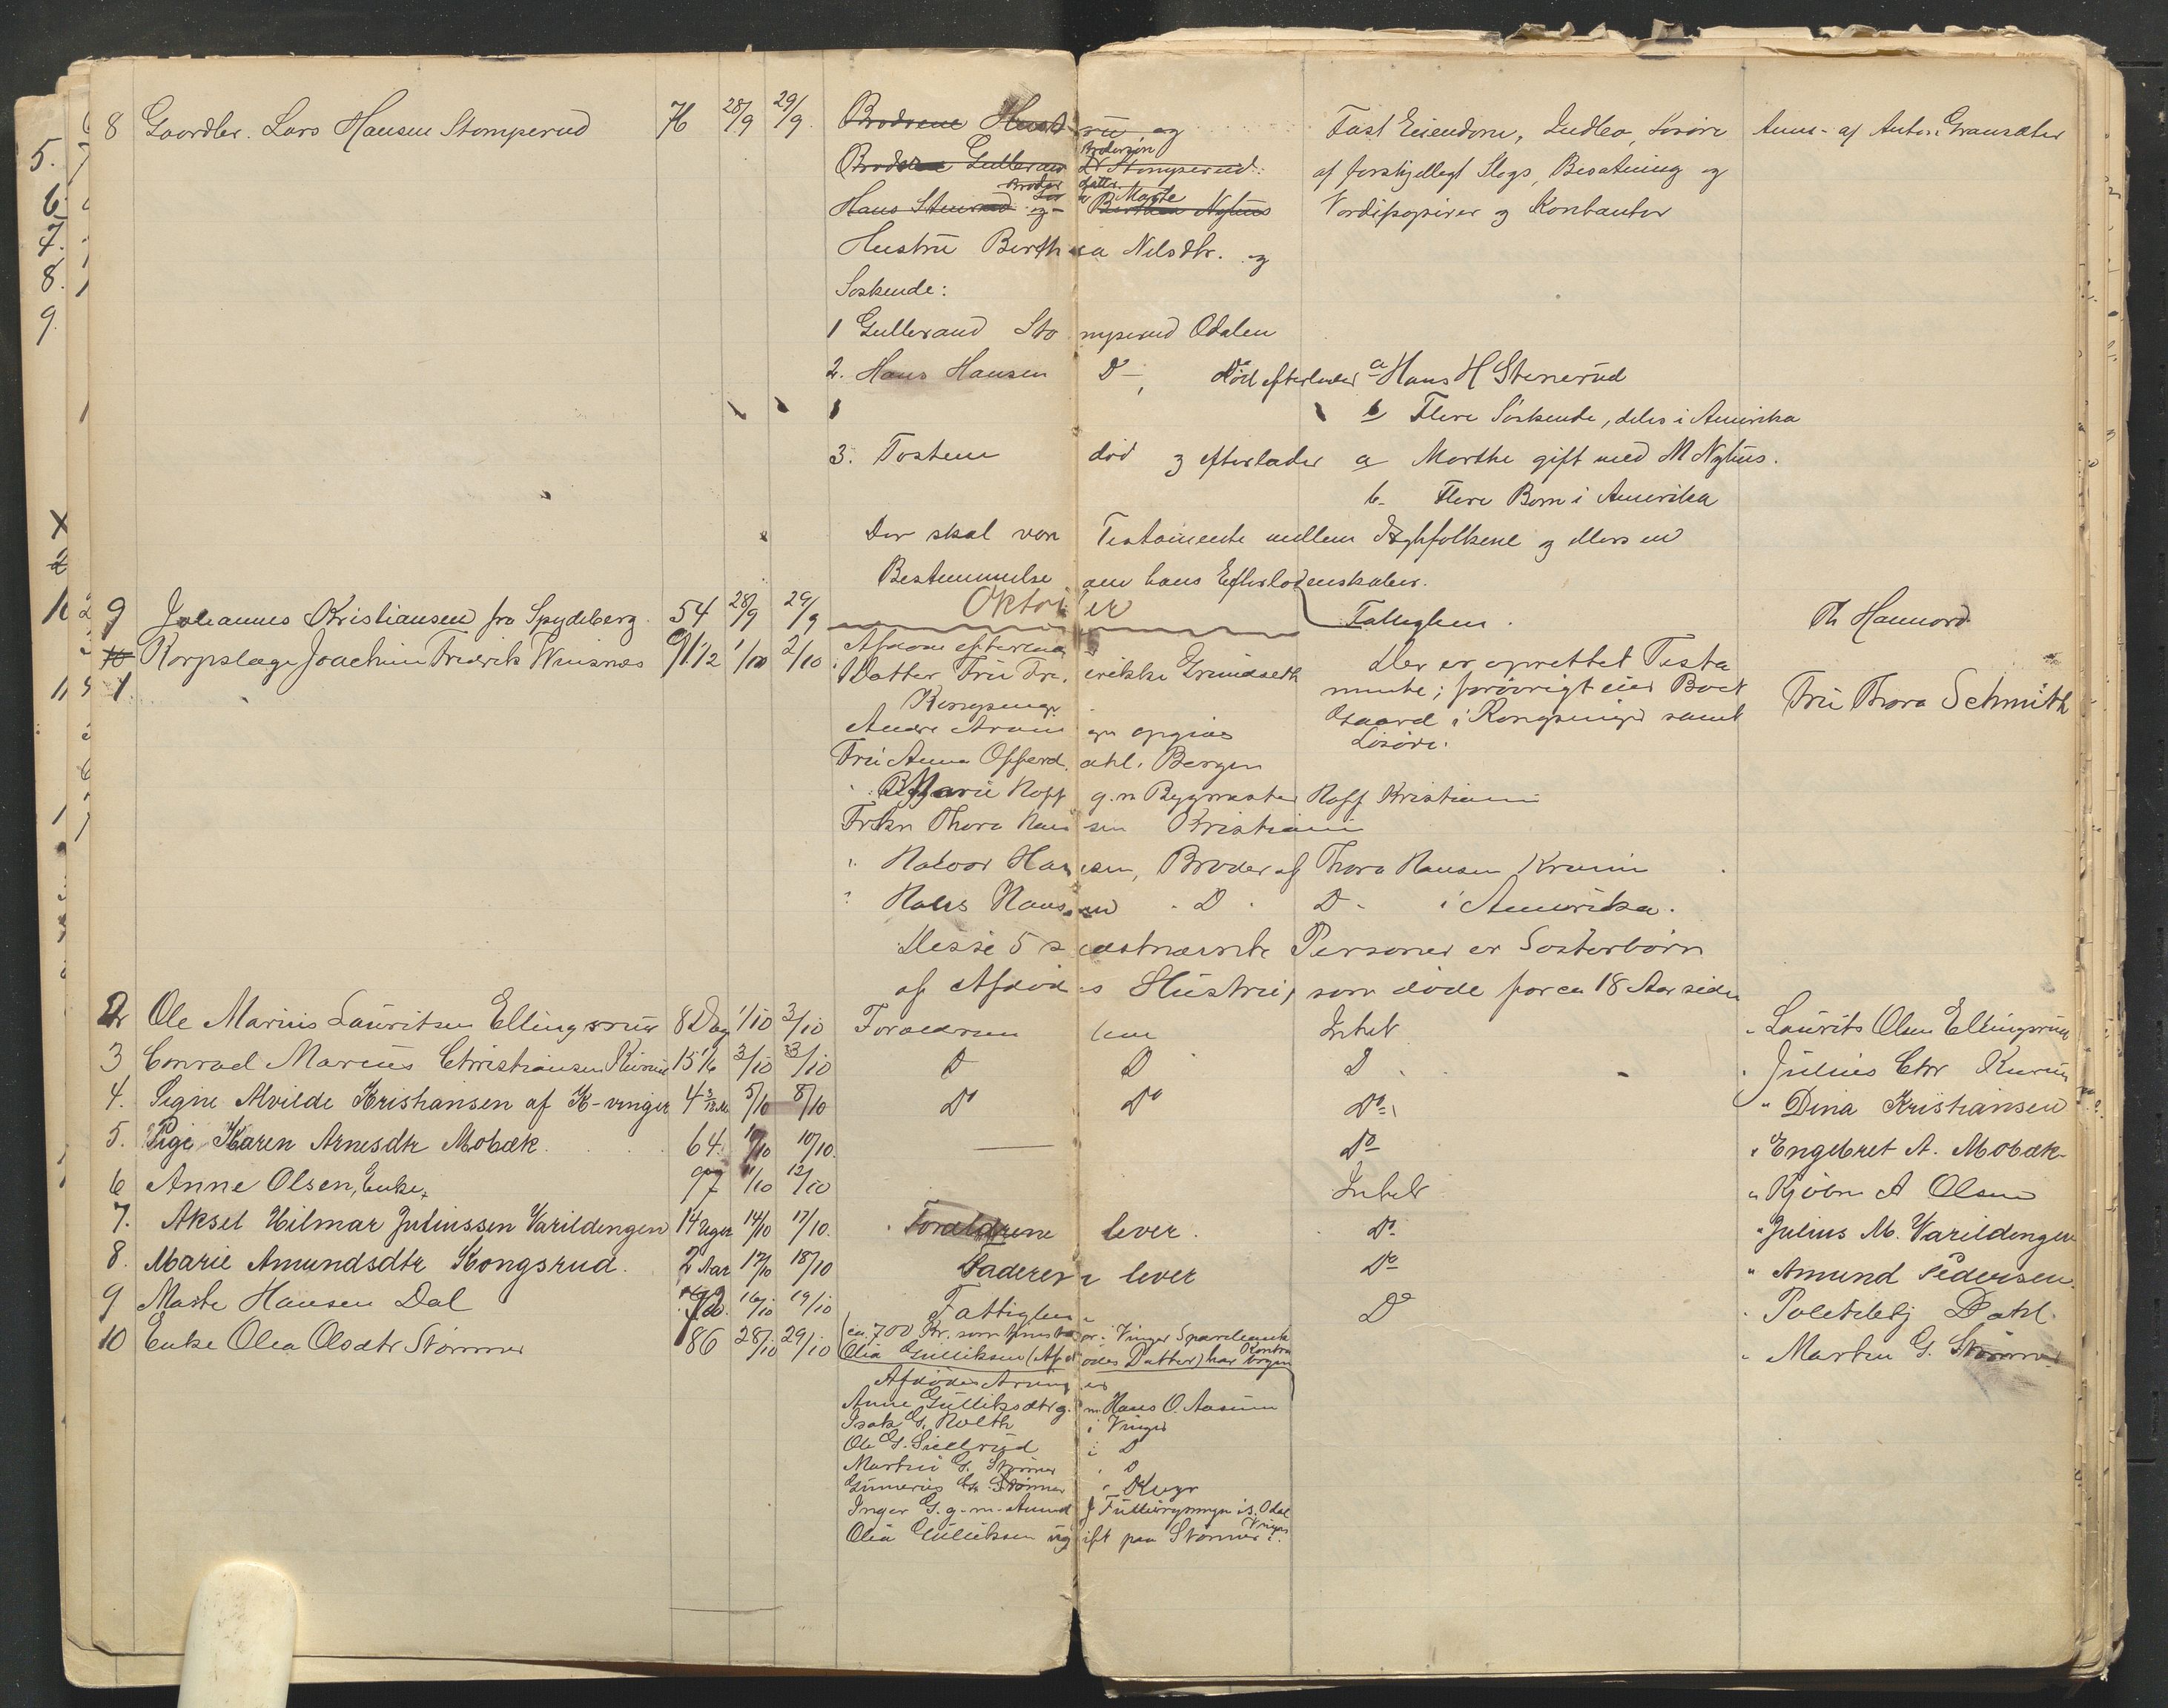 8 Gaardbr. Lars Hansen Stomperud 76 28/9 29/9 Brødrene Hustru og Fast Eiendom, Indbo, Løsøre Anm. af Anton Gransæter
Gulbrand Brodersøn Stomperud af forskjelligt Slags, Besætning og
Hans Stenerud og Marte Berthea Nyhus Værdipapirer og Kontanter
Hustru Berthea Nilsdtr. og
Søskende:
1 Gulbrand Stomperud Odalen
2. Hans Hansen Do død efterlader a Hans H Stenerud
b Flere Søskende, deles i Amerika
3. Tosten død og efterlader a Marthe gift med M Nyhus.
b. Flere Børn i Amerika
Der skal være Testamente mellem Ægtefolkene og ellers en
Bestemmelse om hans Efterladenskaber.
9 Johannes Kristiansen fra Spydeberg 54 28/9 29/9 Fattiglem. Th Hannord
Oktober
10 Korpslæge Joachim Fredrik Wiisnæs 91 1/2 1/10 2/10 Afdøde efterlader Der er oprettet Testa
1. Datter Fru Fredrikke Grundseth mente; forøvrigt eier Boet Fru Thora Schmith
Kongsvinger Gaard i Kongsvinger samt
Andre Arvinger opgives Løsøre.
Fru Anna Offerdahl. Bergen
" Marie Hoff g. m Bygmester Hoff Kristiania
Frkn Thora Hansen Kristiania
" Halvor Hansen, Broder af Thora Hansen Krania
" Hans Hansen Do Do i Amerika.
Disse 5 sidstnævnte Personer er Søsterbørn
af Afdødes Hustru, som døde for ca 18 Aar siden
2 Ole Marius Lauritsen Ellingsrud 8 Dag 1/10 3/10 Forældrene leve Intet " Laurits Olsen Ellingsrud
3 Conrad Marius Christiansen 15 1/6 3/10 3/10 D D D " Julius Chr
4. Signe Alvilde Kristiansen af K-vinger 4 5/10 8/10 Do Do Do " Dina Kristiansen
5. Pige Karen Arnesdtr Mobæk. 64. 10/10 10/10. — Do " Engebret A. Mobæk
6 Anne Olsen, Enke, 97 11/10 12/10 Intet " Kjøbm A Olsen
7. Aksel Hilmar Juliussen Varildengen 14 Uger 14/10 17/10. Forældrene lever. Do " Julius M. Varildengen
8. Marie Amundsdtr Kongsrud. 2 Aar 17/10 18/10 Faderen lever Do " Amund Pedersen.
9 Marte Hansen Dal 16/10 19/10 Fattiglem Do " Politibetj Dahl.
10 Enke Olea Olsdtr Stømner 86 28/10 29/10 (ca. 700 Kr. som i Vinger Sparebank " Martin G. Stømner
Olia Gulliksen (Afdødes Datter) har
Afdødes Arvinger
Anne Gulliksdtr g. m. Hans O. Aasum
Isak G. Holth i Vinger
Ole G. Siellrud i D
Martin G. Stømner " D
Gunerius G. Stømner
Inger G. g. m. Amund J i S. Odal
Olia Gulliksen ugift paa Stømner i Vinger